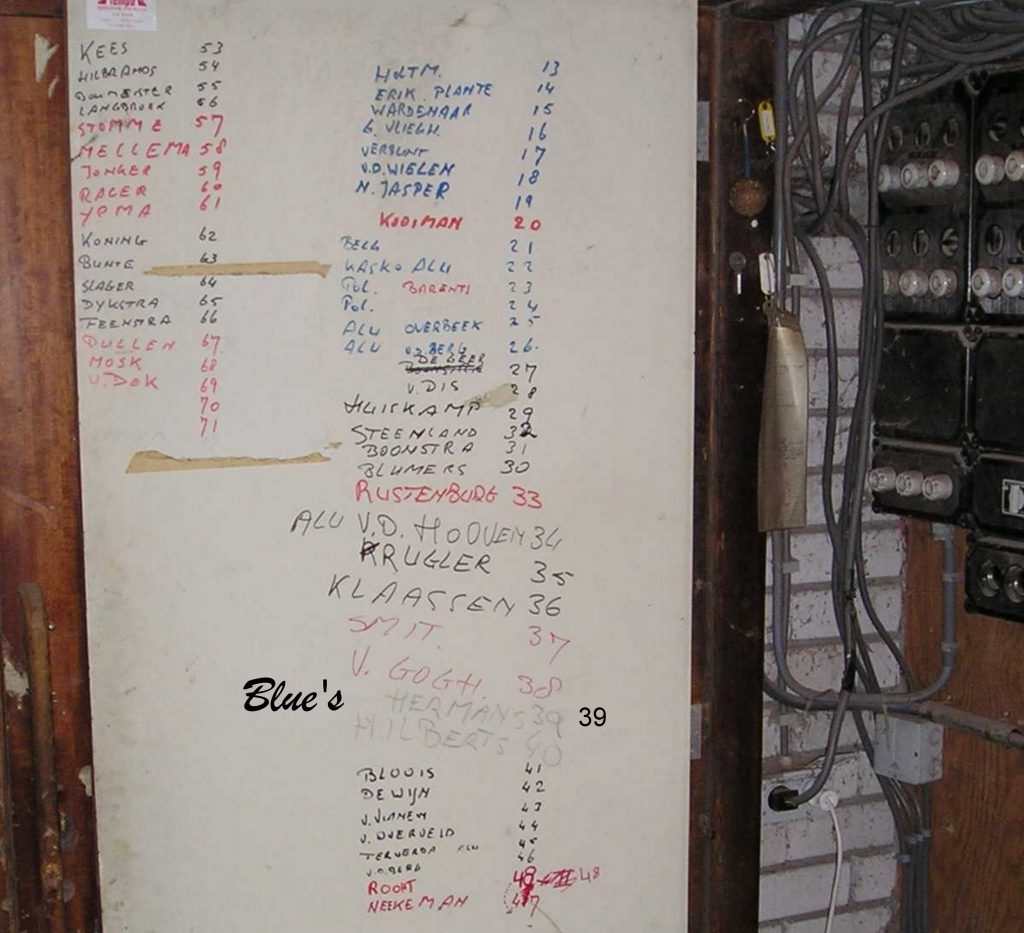 Tempo
KEES 53
HILBRANDS 54
BOUMEESTER 55
LANGBROEK 56
STOMME 57
MELLEMA 58
JONKER 59
RACER 60
YPMA 61
KONING 62
BUNTE 63
SLAGER 64
DYKSTRA 65
FEENSTRA 66
DULLEN 67
MOSK 68
V. DOK 69
70
71
HOLTM. 13
ERIK. PLANTE 14
WARDENAAR 15
G. VLIEGH. 16
VERBUNT 17
V.D. WIELEN 18
N. JASPER 19
KOOIMAN 20
BELG 21
KASKO ALU 22
POL. BARENTS 23
POL. 24
ALU OVERBEEK 25
ALU V.D. BERG 26.
DE GEER 27
V. DIS 28
HUISKAMP 29
STEENLAND 32
BOONSTRA 31
BLUMERS 30
RUSTENBURG 33
ALU V.D. HOOVEN 34
KRUGLER 35
KLAASSEN 36
SMIT 37
V. GOGH. 38
Blue's HERMANS 39 39
HILBERTS 40
BLOOIS 41
DE WIJN 42
V. VIANEN 43
V. OVERVELD 44
45
V.D. BERG 46
ROOKT 48 48
NEEKEMAN 47